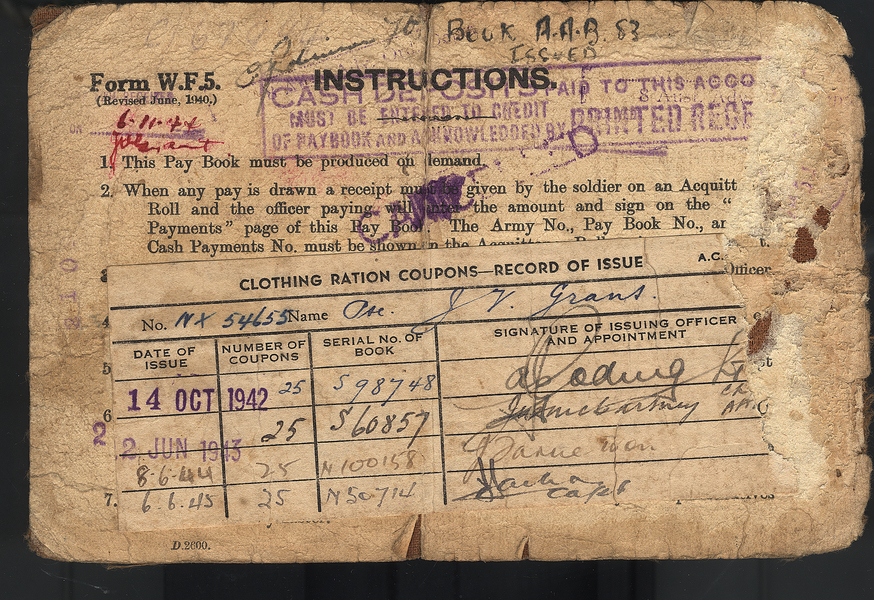 Book A.A.B. 83
ISSUED
Form W.F.5.
(Revised June, 1940.)
INSTRUCTIONS.
CASH DEPOSITS PAID TO THIS ACCO
MUST BE ENTERED TO CREDIT
OF PAYBOOK AND ACKNOWLEDGED BY PRINTED RECE
6-11-44
1. This Pay Book must be produced on demand.
2. When any pay is drawn a receipt must be given by the soldier on an Acquitt
Roll and the officer paying will enter the amount and sign on the "
Payments" page of this Pay Book. The Army No., Pay Book No., an
Cash Payments No. must be shown on the Acquittance Roll
CLOTHING RATION COUPONS—RECORD OF ISSUE
A.C.
Officer
No. NX 54655 Name Pte. J V. Grant.
DATE OF ISSUE NUMBER OF COUPONS SERIAL No. OF BOOK SIGNATURE OF ISSUING OFFICER AND APPOINTMENT
14 OCT 1942 25 S98748
2 JUN 1943 25 S60857
8-6-44 25 N100158
6.6.45 25 N50714 Capt
7.
D.2600.